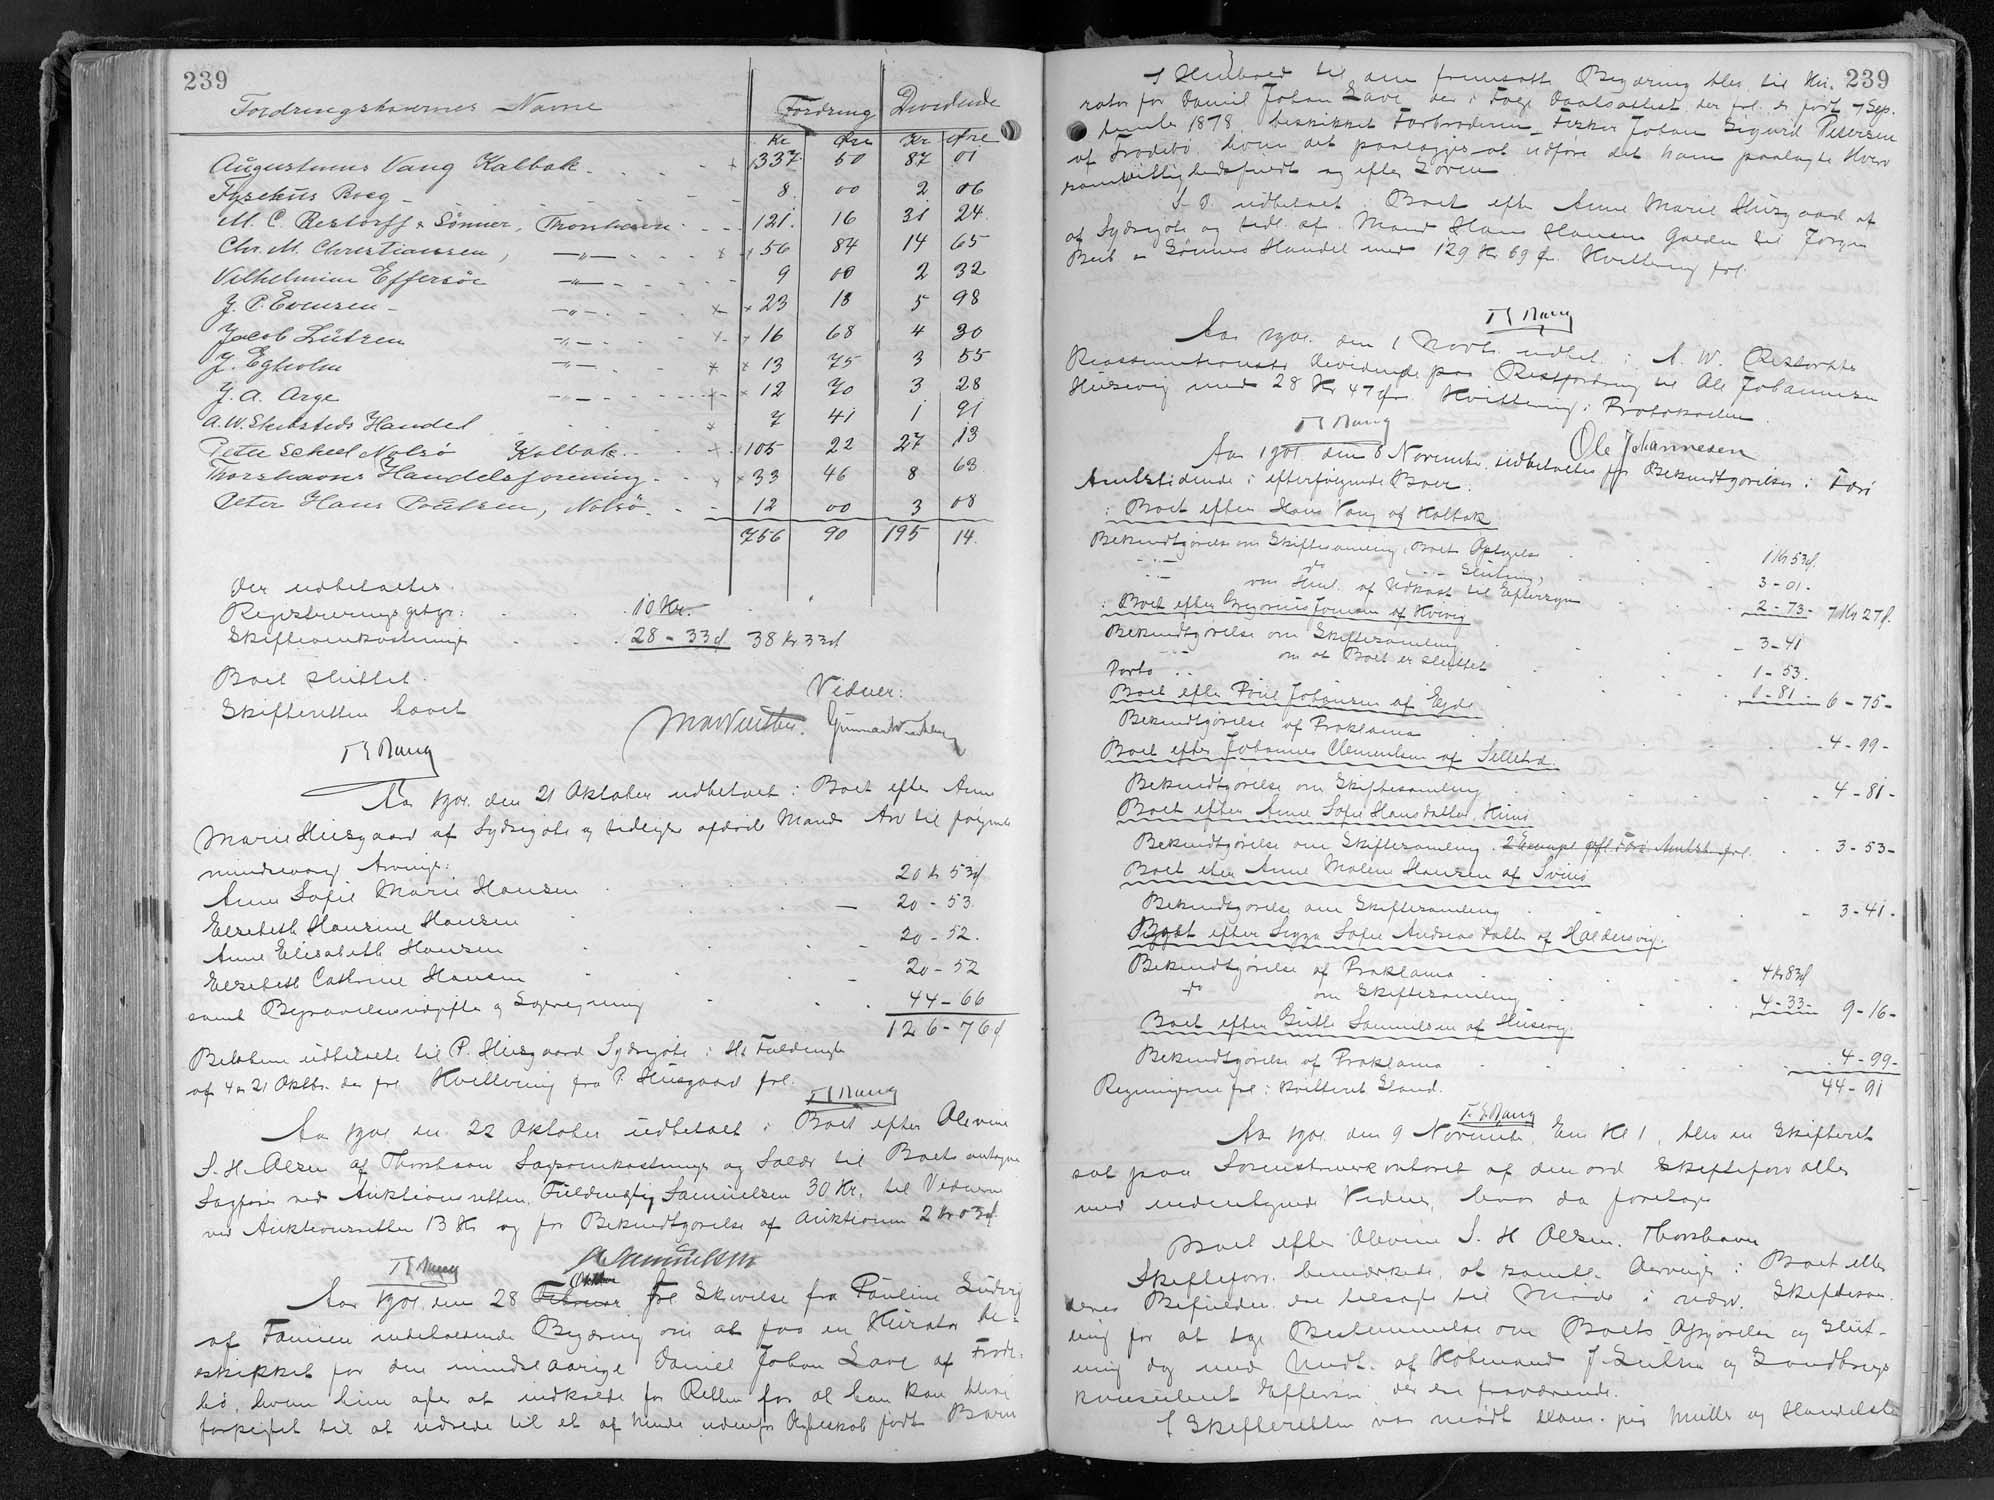 239
Fordringshavernes Navne Fordring Dividende
Kr Øre Kr Øre
Augustinus Vang Kalbak 337 50 87 01
8 00 2 06
M. C. Restorff & Sønner, Thorshavn 121 16 31 24
Chr. M. Christiansen, —"— 56 84 14 65
Vilhelmine Effersöe —"— 9 00 2 32
J. P. Evensen —"— 23 18 5 98
Jacob Lützen —"— 16 68 4 30
J. Egholm —"— 13 75 3 55
J. A. Arge —"— 12 70 3 28
A. W. Skibsteds Handel 7 41 1 91
Peter Scheel Nolsö Kalbak 105 22 27 13
Thorshavns Handelsforening 33 46 8 63
Peter Hans Poulsen, Nolsö 12 00 3 08
756 90 195 14
Der udbetaltes
Registreringsgebyr: 10 Kr.
Skifteomkostninger 28 - 33 38 Kr 33
Boet sluttet.
Skifteretten hævet
Vidner:
Aar 1901 den 21 Oktober udbetalt i Boet efter Anne
Marie Husgaard af Sydregöte og tidligere afdöde Mand Arv til følgende
mindreaarige Arvinger:
Anne Sofie Marie Hansen 20 Kr 53
Elsebeth Hansine Hansen 20 - 53
Anne Elisabeth Hansen 20 - 52
Elsebeth Cathrine Hansen 20 - 52
samt Begravelsesudgifter og 44 - 66
126 - 76
Beløbene udbetalte til P. Husgaard Sydregöte i Hht Fuldmagt
af 4 og 21 Oktbr. der frl Kvittering fra P. Husgaard frl.
Aar 1901 den 22 Oktober udbetalt i Boet efter Olevine
S. H. Olsen af Thorshavn Sagsomkostninger og Salær til Boets antagne
Sagfører ved Auktionsretten Fuldmægtig Samuelsen 30 Kr. til Vidnerne
ved Auktionsretten 13 Kr og for Bekendtgørelse af Auktionen 2 Kr 03
Samuelsen
Aar 1901 den 28 Februar Oktober frl Skrivelse fra Pauline Ludvig
af Famien indeholdende Begæring om at faa en Kurator be-
skikket for den mindreaarige Daniel Johan Lave af Frode-
bö, hvem hun agter at indkalde for Retten for at han kan blive
forpligtet til at udrede til et af hende udenfor Ægteskab født Barn
239
I Henhold til den fremsatte Begæring blev til Ku-
rator for Daniel Johan Lave, der i Følge Daabsattest, der frl. er født 7 Sep-
tember 1878, beskikket Farbroderen Fisker Johan Sigurd Petersen
af Frodebö, hvem det paalægges at udføre det ham paalagte Hverv
samvittighedsfuldt og efter Loven.
S. D. udbetalt i Boet efter Anne Marie Husgaard af
af Sydregöte og tidl. afd. Mand Hans Hansen Gælden til Jørgen
Bech & Sønners Handel med 129 Kr 69 Øre Kvittering frl.
Aar 1901 den 1 Novbr. udbet. i A. W. Restorffs
Dividende paa Restfordring til Ole Johannesen
Husevig med 28 Kr 47 Øre Kvittering i Protokollen
Ole Johannesen
Aar 1901 den 8 November udbetaltes for Bekendtgørelser i Færø
Amtstidende i efterfølgende Boer:
Boet efter Hans Vang af Kalbak
Bekendtgørelse om Skiftesamling i Boet 1 Kr 53
do Slutning 3 - 01
om Heml. af Udkast til Eftersyn 2 - 73 - 7 Kr 27
Boet efter Gregorius Joensen af Kvivig
Bekendtgørelse om Skiftesamling 3 - 41
om at Boet er sluttet 1 - 53
Porto 1 - 81 - 6 - 75 -
Boet efter Poul Johansen af Ejde
Bekendtgørelse af Proklama 4 - 99 -
Boet efter Johannes Clementsen af Selletrö
Bekendtgørelse om Skiftesamling 4 - 81 -
Boet efter Anne Sofie Hansdatter,
Bekendtgørelse om Skiftesamling 3 - 53 -
Boet efter Anne Malene Hansen af Svinö
Bekendtgørelse om Skiftesamling 3 - 41 -
Boet efter Sigga Sofie Andreasdatter af Haldersvig
Bekendtgørelse af Proklama 4 Kr 83
do om Skiftesamling 4 - 33 - 9 - 16 -
Boet efter Gutte Samuelsen af Husevig
Bekendtgørelse af Proklama 4 - 99 -
Regningerne frl. i kvitteret Stand. 44 - 91
Aar 1901 den 9 November, Em Kl 1, blev en Skifteret
sat paa Sorenskriverkontoret af den ord Skifteforvalter
med undertegnede Vidner, hvor da foretoges
Boet efter Olevine S. H Olsen. Thorshavn
Skifteforv. bemærkede, at samtl. Arvinger i Boet eller
deres Befuldm. ere tilsagte til Møde i nærv. Skiftesam-
ling for at tage Bestemmelse om Boets Opgørelse og Slut-
ning dog med Undt. af Købmand J. Lützen og Landbrugs
konsulent Effersöe der ere fraværende.
I Skifteretten var mødt Müller og Handelsbe